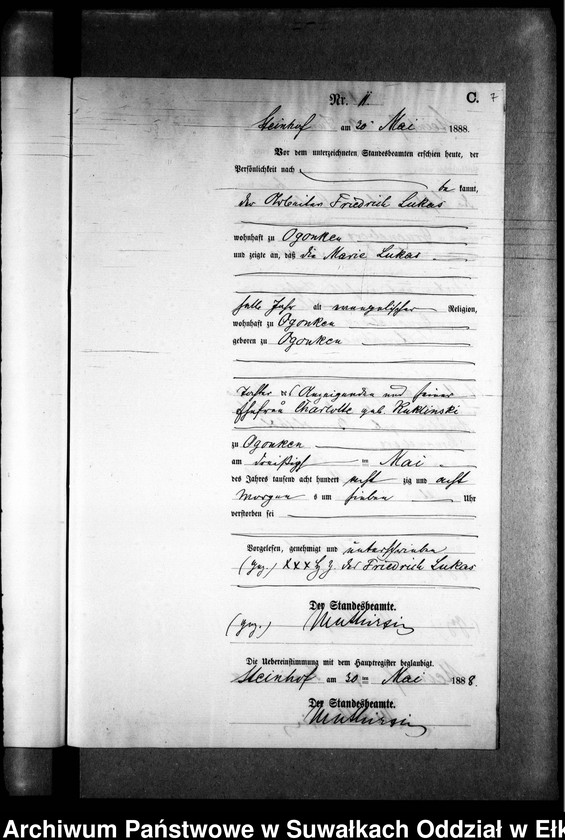 Nr. 11
C. 7
Steinhof am 30 ten Mai 1888.
Vor dem unterzeichneten Standesbeamten erschien heute, der
Persönlichkeit nach
be kannt,
der Arbeiter Friedrich Lukas
wohnhaft zu Ogonken
und zeigte an, daß die Marie Lukas
halb Jahr alt evangelischer Religion,
wohnhaft zu Ogonken
geboren zu Ogonken
Tochter des Anzeigenden und seiner
Ehefrau Charlotte geb Kuklinski
zu Ogonken
am dreißigst ten Mai
des Jahres tausend acht hundert acht zig und acht
Morgens um sieben Uhr
verstorben sei
Vorgelesen, genehmigt und unterschrieben
(gez.) XXX Hz. des Friedrich Lukas
Der Standesbeamte.
(gez.)
Die Uebereinstimmung mit dem Hauptregister beglaubigt.
Steinhof am 30 ten Mai 1888.
Der Standesbeamte.
Archiwum Państwowe w Suwałkach Oddział w Ełk